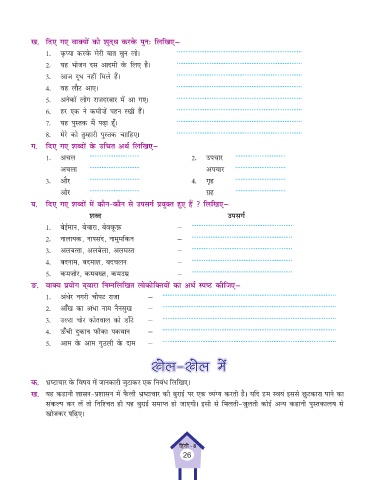 ख. दिए गए वाक्यों को शुद्ध करके पुन: लिखिए–
1. कृप्या करके मेरी बात सुन लो।
2. यह भोजन दस आदमी के लिए है।
3. आज दूध नहीं मिले हैं।
4. वह लौट आए।
5. अनेकों लोग राजदरबार में आ गए।
6. हर एक ने कमीजें पहन रखी हैं।
7. यह पुस्तक मैं पढ़ा हूँ।
8. मेरे को तुम्हारी पुस्तक चाहिए।
ग. दिए गए शब्दों के उचित अर्थ लिखिए–
1. अचल
2. उपचार
अचला
अपचार
3. और
4. गृह
ओर
ग्रह
घ. दिए गए शब्दों में कौन-कौन से उपसर्ग प्रयुक्त हुए हैं ? लिखिए–
शब्द उपसर्ग
1. बेईमान, बेचारा, बेवकूफ़ –
2. नालायक, नापसंद, नामुमकिन –
3. अलबत्ता, अलबेला, अलमस्त –
4. बदनाम, बदमाश, बदचलन –
5. कमज़ोर, कमबख्त, कमउम्र –
ङ. वाक्य प्रयोग द्वारा निम्नलिखित लोकोक्तियों का अर्थ स्पष्ट कीजिए–
1. अंधेर नगरी चौपट राजा –
2. आँख का अंधा नाम नैनसुख –
3. उल्टा चोर कोतवाल को डाँटे –
4. ऊँची दुकान फीका पकवान –
5. आम के आम गुठली के दाम –
खेल-खेल में
क. भ्रष्टाचार के विषय में जानकारी जुटाकर एक निबंध लिखिए।
ख. यह कहानी शासन-प्रशासन में फैली भ्रष्टाचार की बुराई पर एक व्यंग्य करती है। यदि हम स्वयं इससे छुटकारा पाने का
संकल्प कर लें तो निश्चित ही यह बुराई समाप्त हो जाएगी। इसी से मिलती-जुलती कोई अन्य कहानी पुस्तकालय में
खोजकर पढ़िए।
हिंदी-8
26